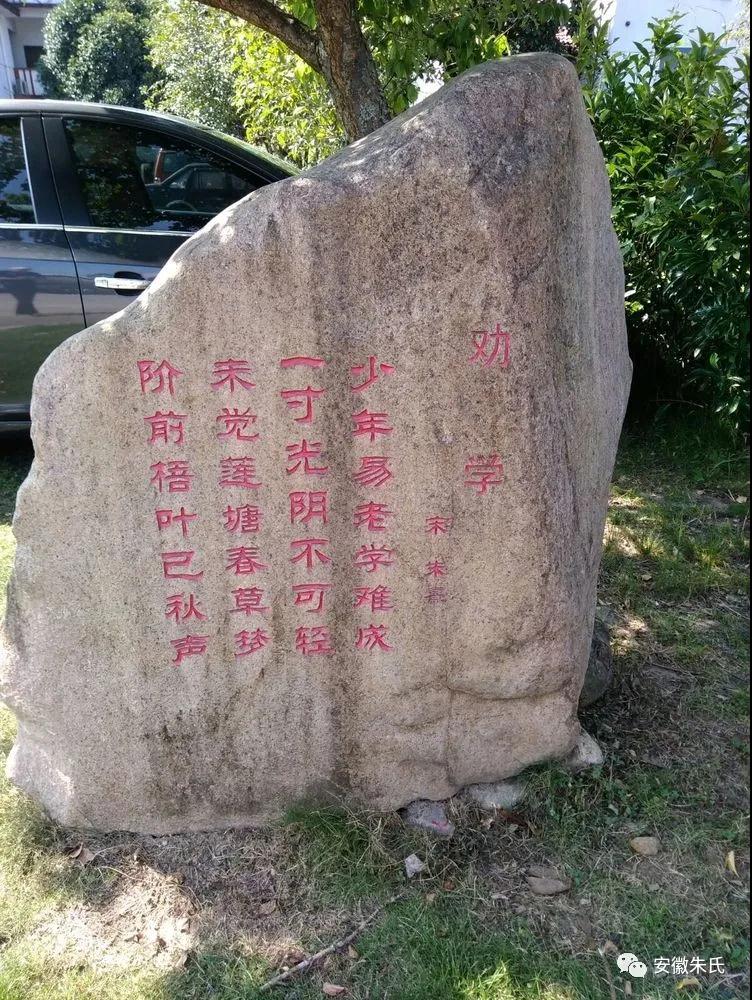 劝学
宋 朱熹
少年易老学难成
一寸光阴不可轻
未觉莲塘春草梦
阶前梧叶已秋声
安徽朱氏